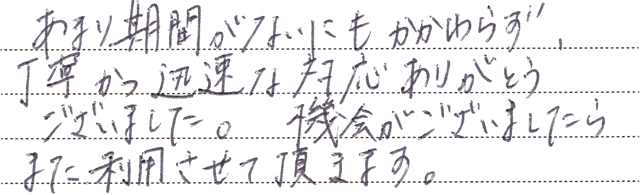 あまり期間がないにもかかわらず、
丁寧かつ迅速な対応ありがとう
ございました。 機会がございましたら
また利用させて頂きます。